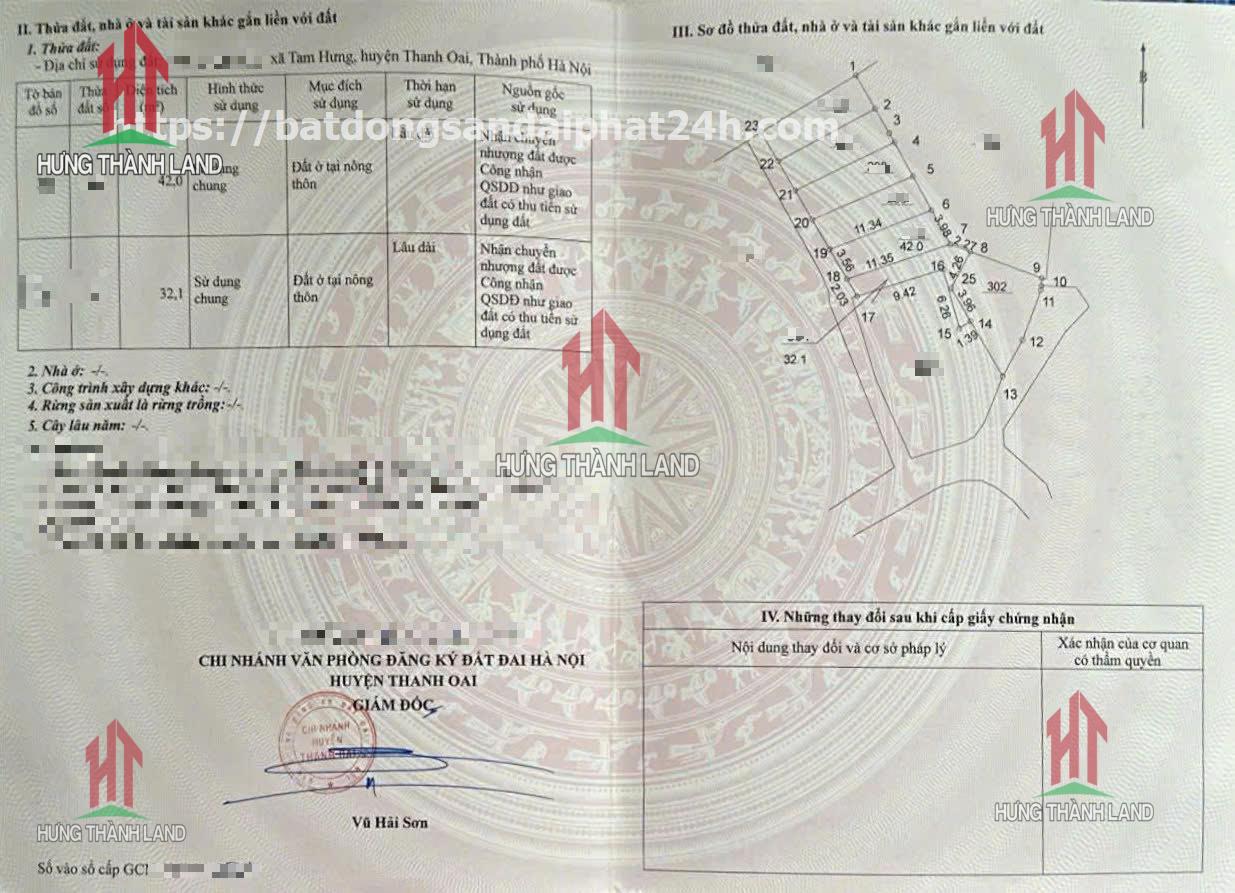 II. Thửa đất, nhà ở và tài sản khác gắn liền với đất
1. Thửa đất:
- Địa chỉ sử dụng đất: xã Tam Hưng, huyện Thanh Oai, Thành phố Hà Nội
Tờ bản đồ số
Thửa đất số
Diện tích (m²)
Hình thức sử dụng
Mục đích sử dụng
Thời hạn sử dụng
Nguồn gốc sử dụng
42,0
chung
Đất ở tại nông thôn
Nhận chuyển
nhượng đất được
Công nhận
QSDD như giao
đất có thu tiền sử
dụng đất
32,1
Sử dụng
chung
Đất ở tại nông
thôn
Lâu dài
Nhận chuyển
nhượng đất được
Công nhận
QSDĐ như giao
đất có thu tiền sử
dụng đất
2. Nhà ở: -/-.
3. Công trình xây dựng khác: -/-.
4. Rừng sản xuất là rừng trồng:-/-.
5. Cây lâu năm: -/-.
CHI NHÁNH VĂN PHÒNG ĐĂNG KÝ ĐẤT ĐAI HÀ NỘI
HUYỆN THANH OAI
GIÁM ĐỐC
CHI NHÁNH
HUYỆN
THANH OAI
Vũ Hải Sơn
Số vào sổ cấp GCN
III. Sơ đồ thửa đất, nhà ở và tài sản khác gắn liền với đất
B
1
2
3
4
5
6
7
8
9
10
11
12
13
14
15
16
17
18
19
20
21
22
23
25
11.34
3.98
2.27
42.0
3.56
11.35
4.26
2.03
9.42
6.26
3.96
1.39
302
32.1
IV. Những thay đổi sau khi cấp giấy chứng nhận
Nội dung thay đổi và cơ sở pháp lý
Xác nhận của cơ quan
có thẩm quyền
https://batdongsandaiphat24h.com.
HƯNG THÀNH LAND
HƯNG THÀNH LAND
HƯNG THÀNH LAND
HƯNG THÀNH LAND
HƯNG THÀNH LAND